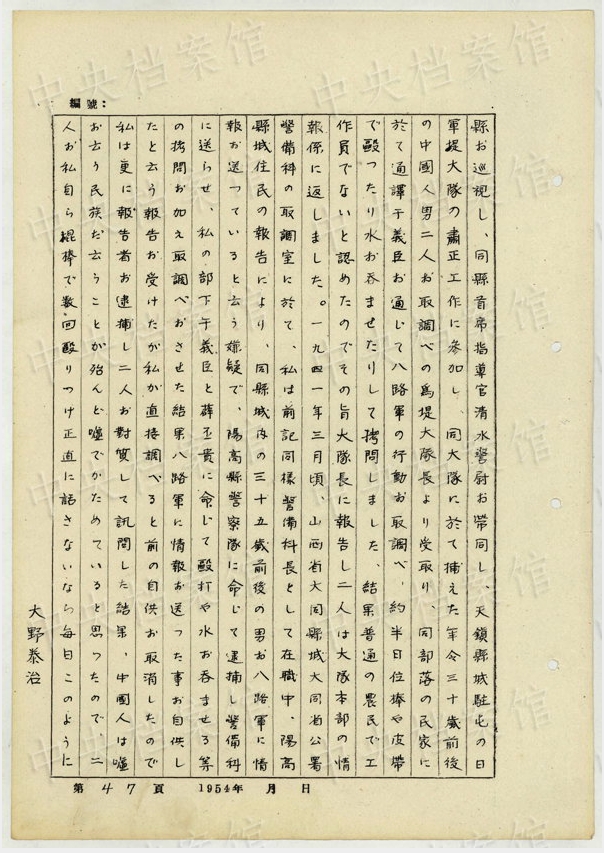 編號:
縣お巡視し、同縣首席指導官清水警尉お帶同し、天鎮縣城駐屯の日
軍提大隊の肅正工作に参加し、同大隊に於て捕えた年令三十歳前後
の中國人男二人お取調べの爲提大隊長より受取り、同部落の民家に
於て通譯于義臣お通じて八路軍の行動お取調べ、約半日位棒や皮帶
で毆ったり水お呑ませたりして拷問しました、結果普通の農民で工
作員でないと認めたのでその旨大隊長に報告し二人は大隊本部の情
報係に返しました。一九四一年三月頃、山西省大同縣城大同省公署
警備科の取調室に於て、私は前記同様警備科長として在職中、陽高
縣城住民の報告により、同縣城内の三十五歳前後の男お八路軍に情
報お送っていると云う嫌疑で、陽高縣警察隊に命じて逮捕し警備科
に送らせ、私の部下于義臣と薛玉貴に命じて毆打や水お呑ませる等
の拷問お加え取調べおさせた結果八路軍に情報お送った事お自供し
たと云う報告お受けたが私が直接調べると前の自供お取消したので
私は更に報告者お逮捕し二人お對質して訊問した結果、中國人は嘘
お云う民族だ云うことが殆んど嘘でかためていると思ったので、二
人お私自ら棍棒で數回毆りつけ正直に話さないなら毎日このように
大野泰治
第 47 頁 1954年 月 日
中央档案馆